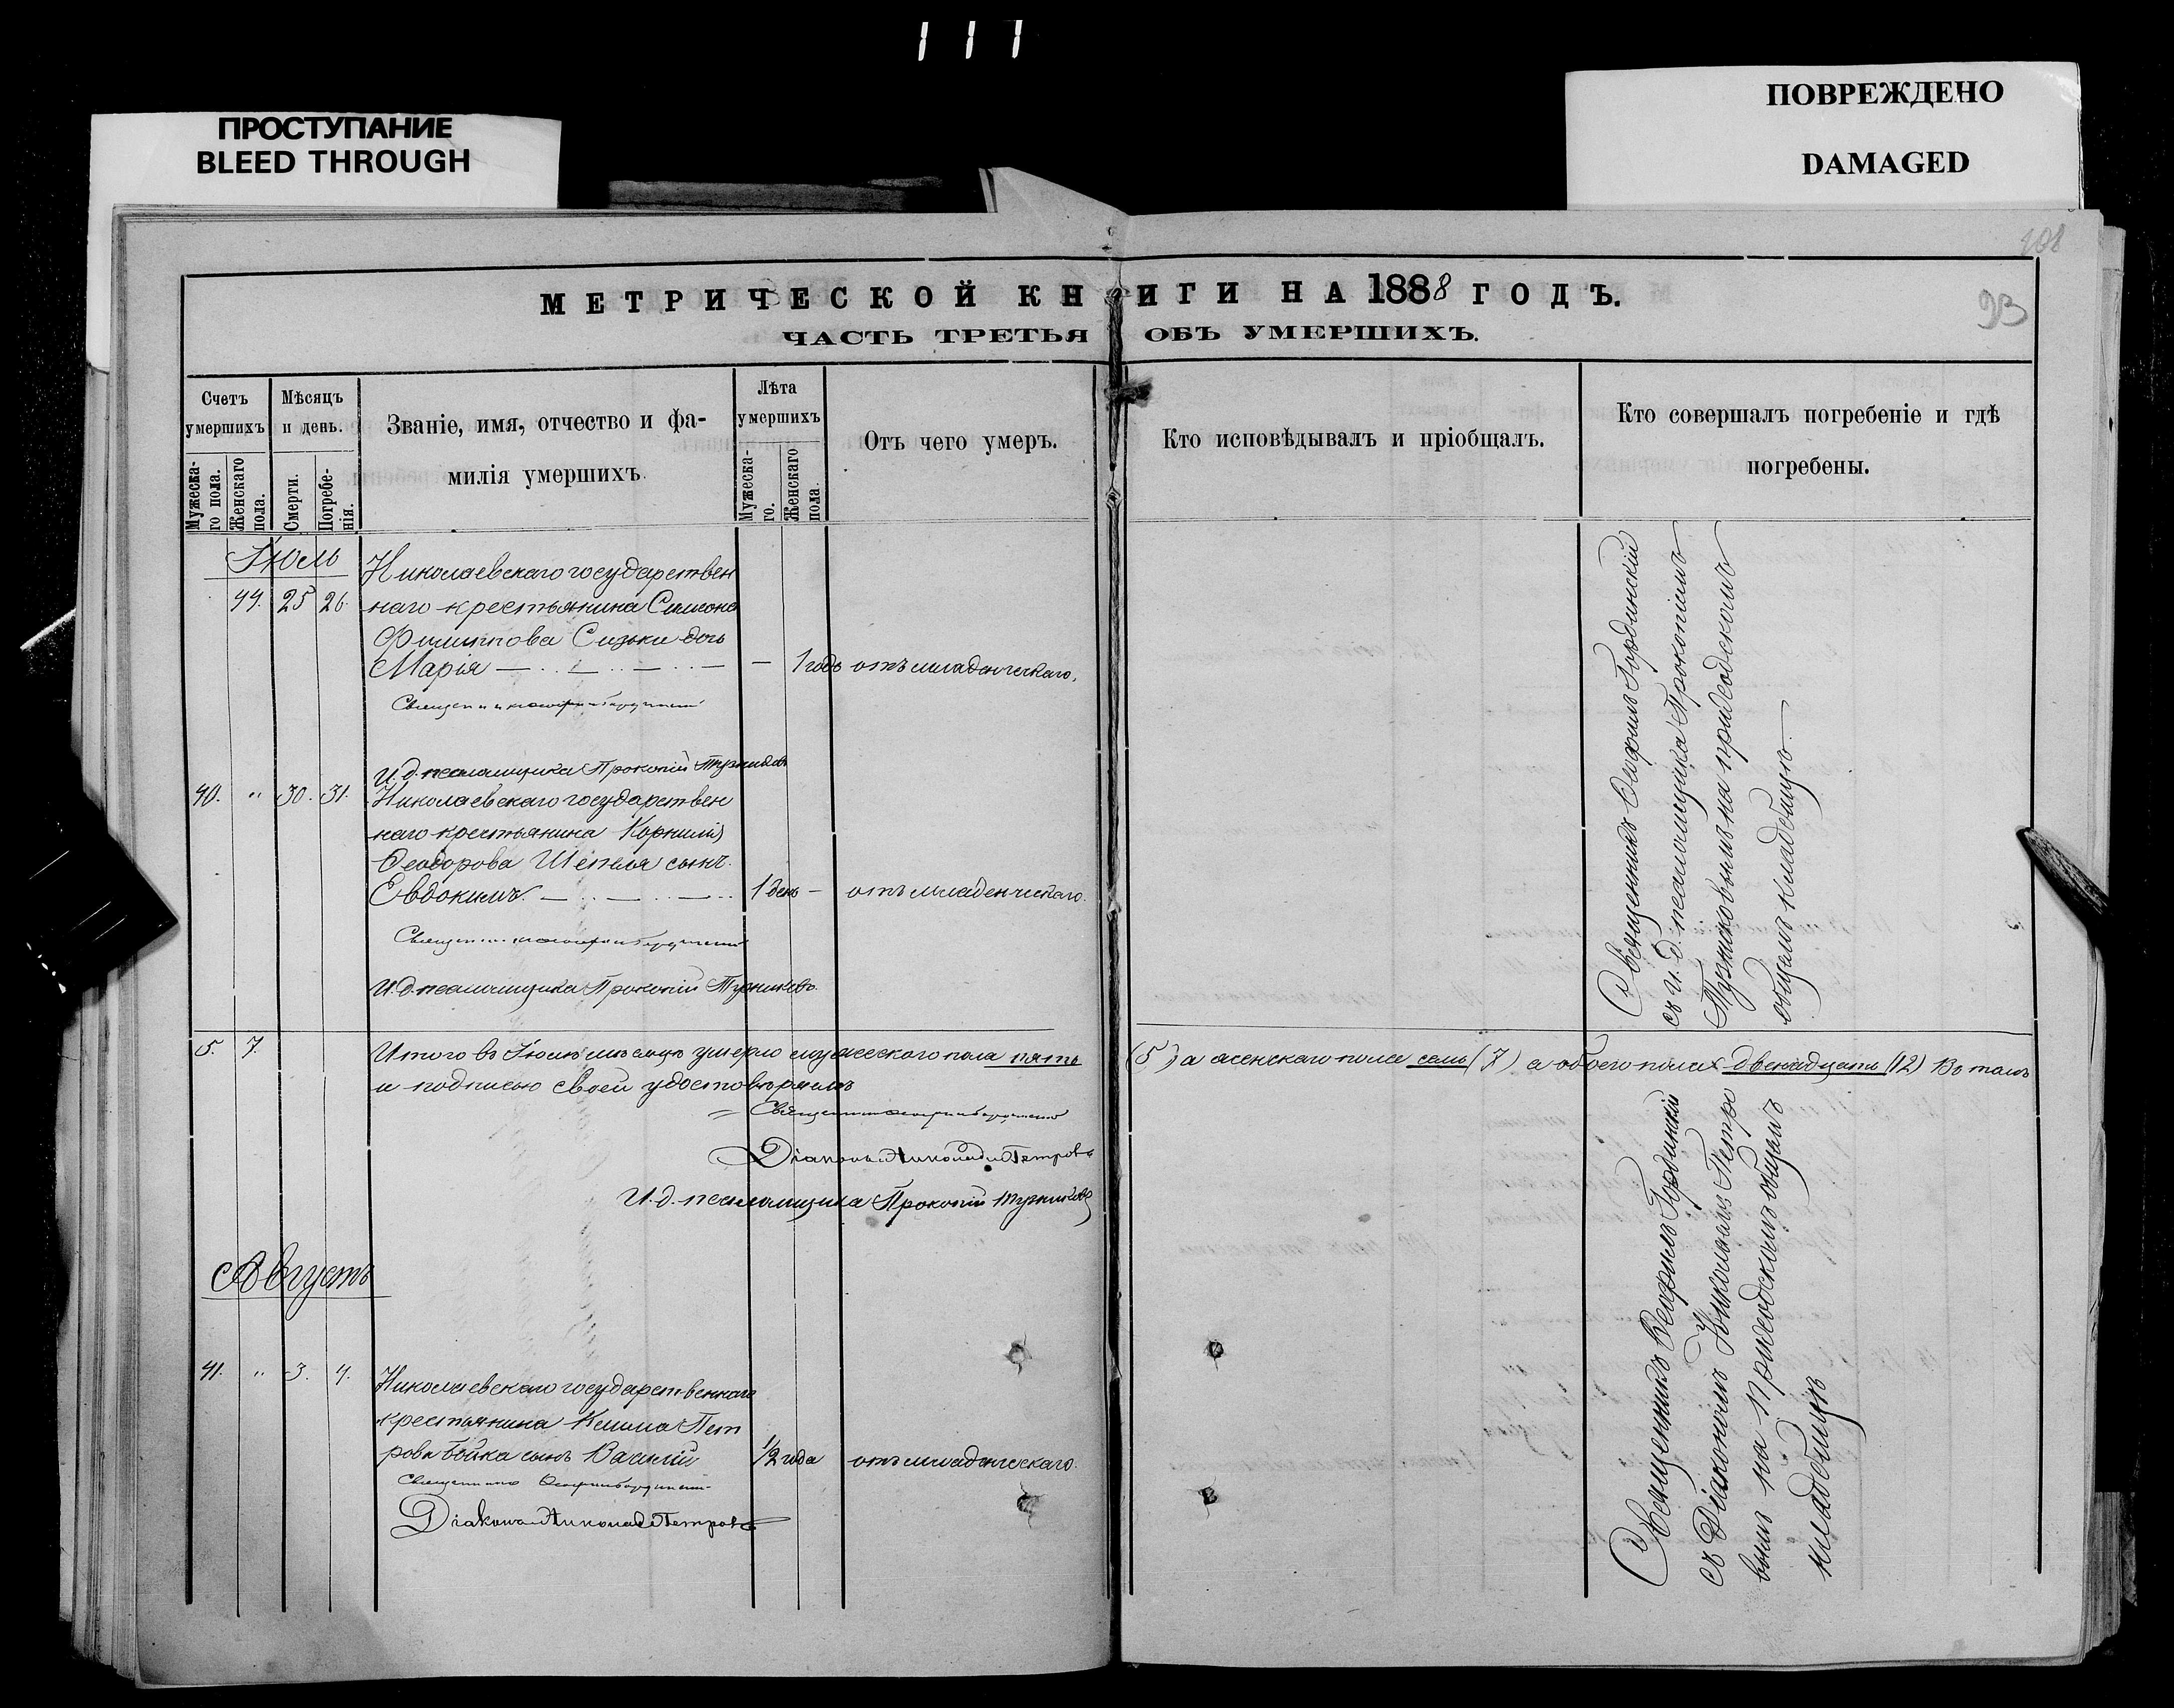 ПРОСТУПАНИЕ
BLEED THROUGH
ПОВРЕЖДЕНО
DAMAGED
93
МЕТРИЧЕСКОЙ КНИГИ НА 1888 ГОДЪ.
ЧАСТЬ ТРЕТЬЯ ОБЪ УМЕРШИХЪ.
Счетъ умершихъ
Мужеска-го пола.
Женскаго пола.
Мѣсяцъ и день.
Смерти.
Погребе-нія.
Званіе, имя, отчество и фа-
милія умершихъ.
Лѣта умершихъ
Мужеска-го.
Женскаго пола.
Отъ чего умеръ.
Кто исповѣдывалъ и пріобщалъ.
Кто совершалъ погребеніе и гдѣ
погребены.
Іюль
Николаевскаго государствен
44. 25 26. наго крестьянина Симона
Филиппова Сизьки дочь
Марія — 1 годъ отъ младенческаго.
И. д. псаломщика Прокопій Турчиковъ
40. " 30. 31. Николаевскаго государствен
наго крестьянина Корнилія
Ѳеодорова Шепеля сынъ
Евдокимъ. 1 день — отъ младенческаго.
И. д. псаломщика Прокопій Турчиковъ
Священникъ Ѳеофилъ Бординскій
съ и. д. псаломщика Прокопіемъ
Турчиковымъ на приходскомъ
общемъ кладбищѣ.
5. 7. Итого въ Іюлѣ мѣсяцѣ умерло мужескаго пола пять (5) а женскаго пола семь (7) а обоего пола двенадцать (12) Въ томъ
и подписью своей удостовѣряемъ
Діаконъ Николай Петровъ
И. д. псаломщика Прокопій Турчиковъ
Августъ
41. " 3. 4. Николаевскаго государственнаго
крестьянина Пет
рова Бойка сынъ Василій 1/2 года отъ младенческаго.
Діаконъ Николай Петровъ
Священникъ Ѳеофилъ Бординскій
съ Діакономъ Николаемъ Петро
вымъ на приходскомъ общемъ
кладбищѣ